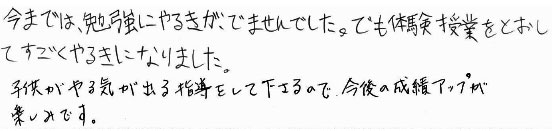 今までは、勉強にやるきが、でませんでした。でも体験授業をとおし
てすごくやるきになりました。
子供がやる気が出る指導をして下さるので、今後の成績アップが
楽しみです。